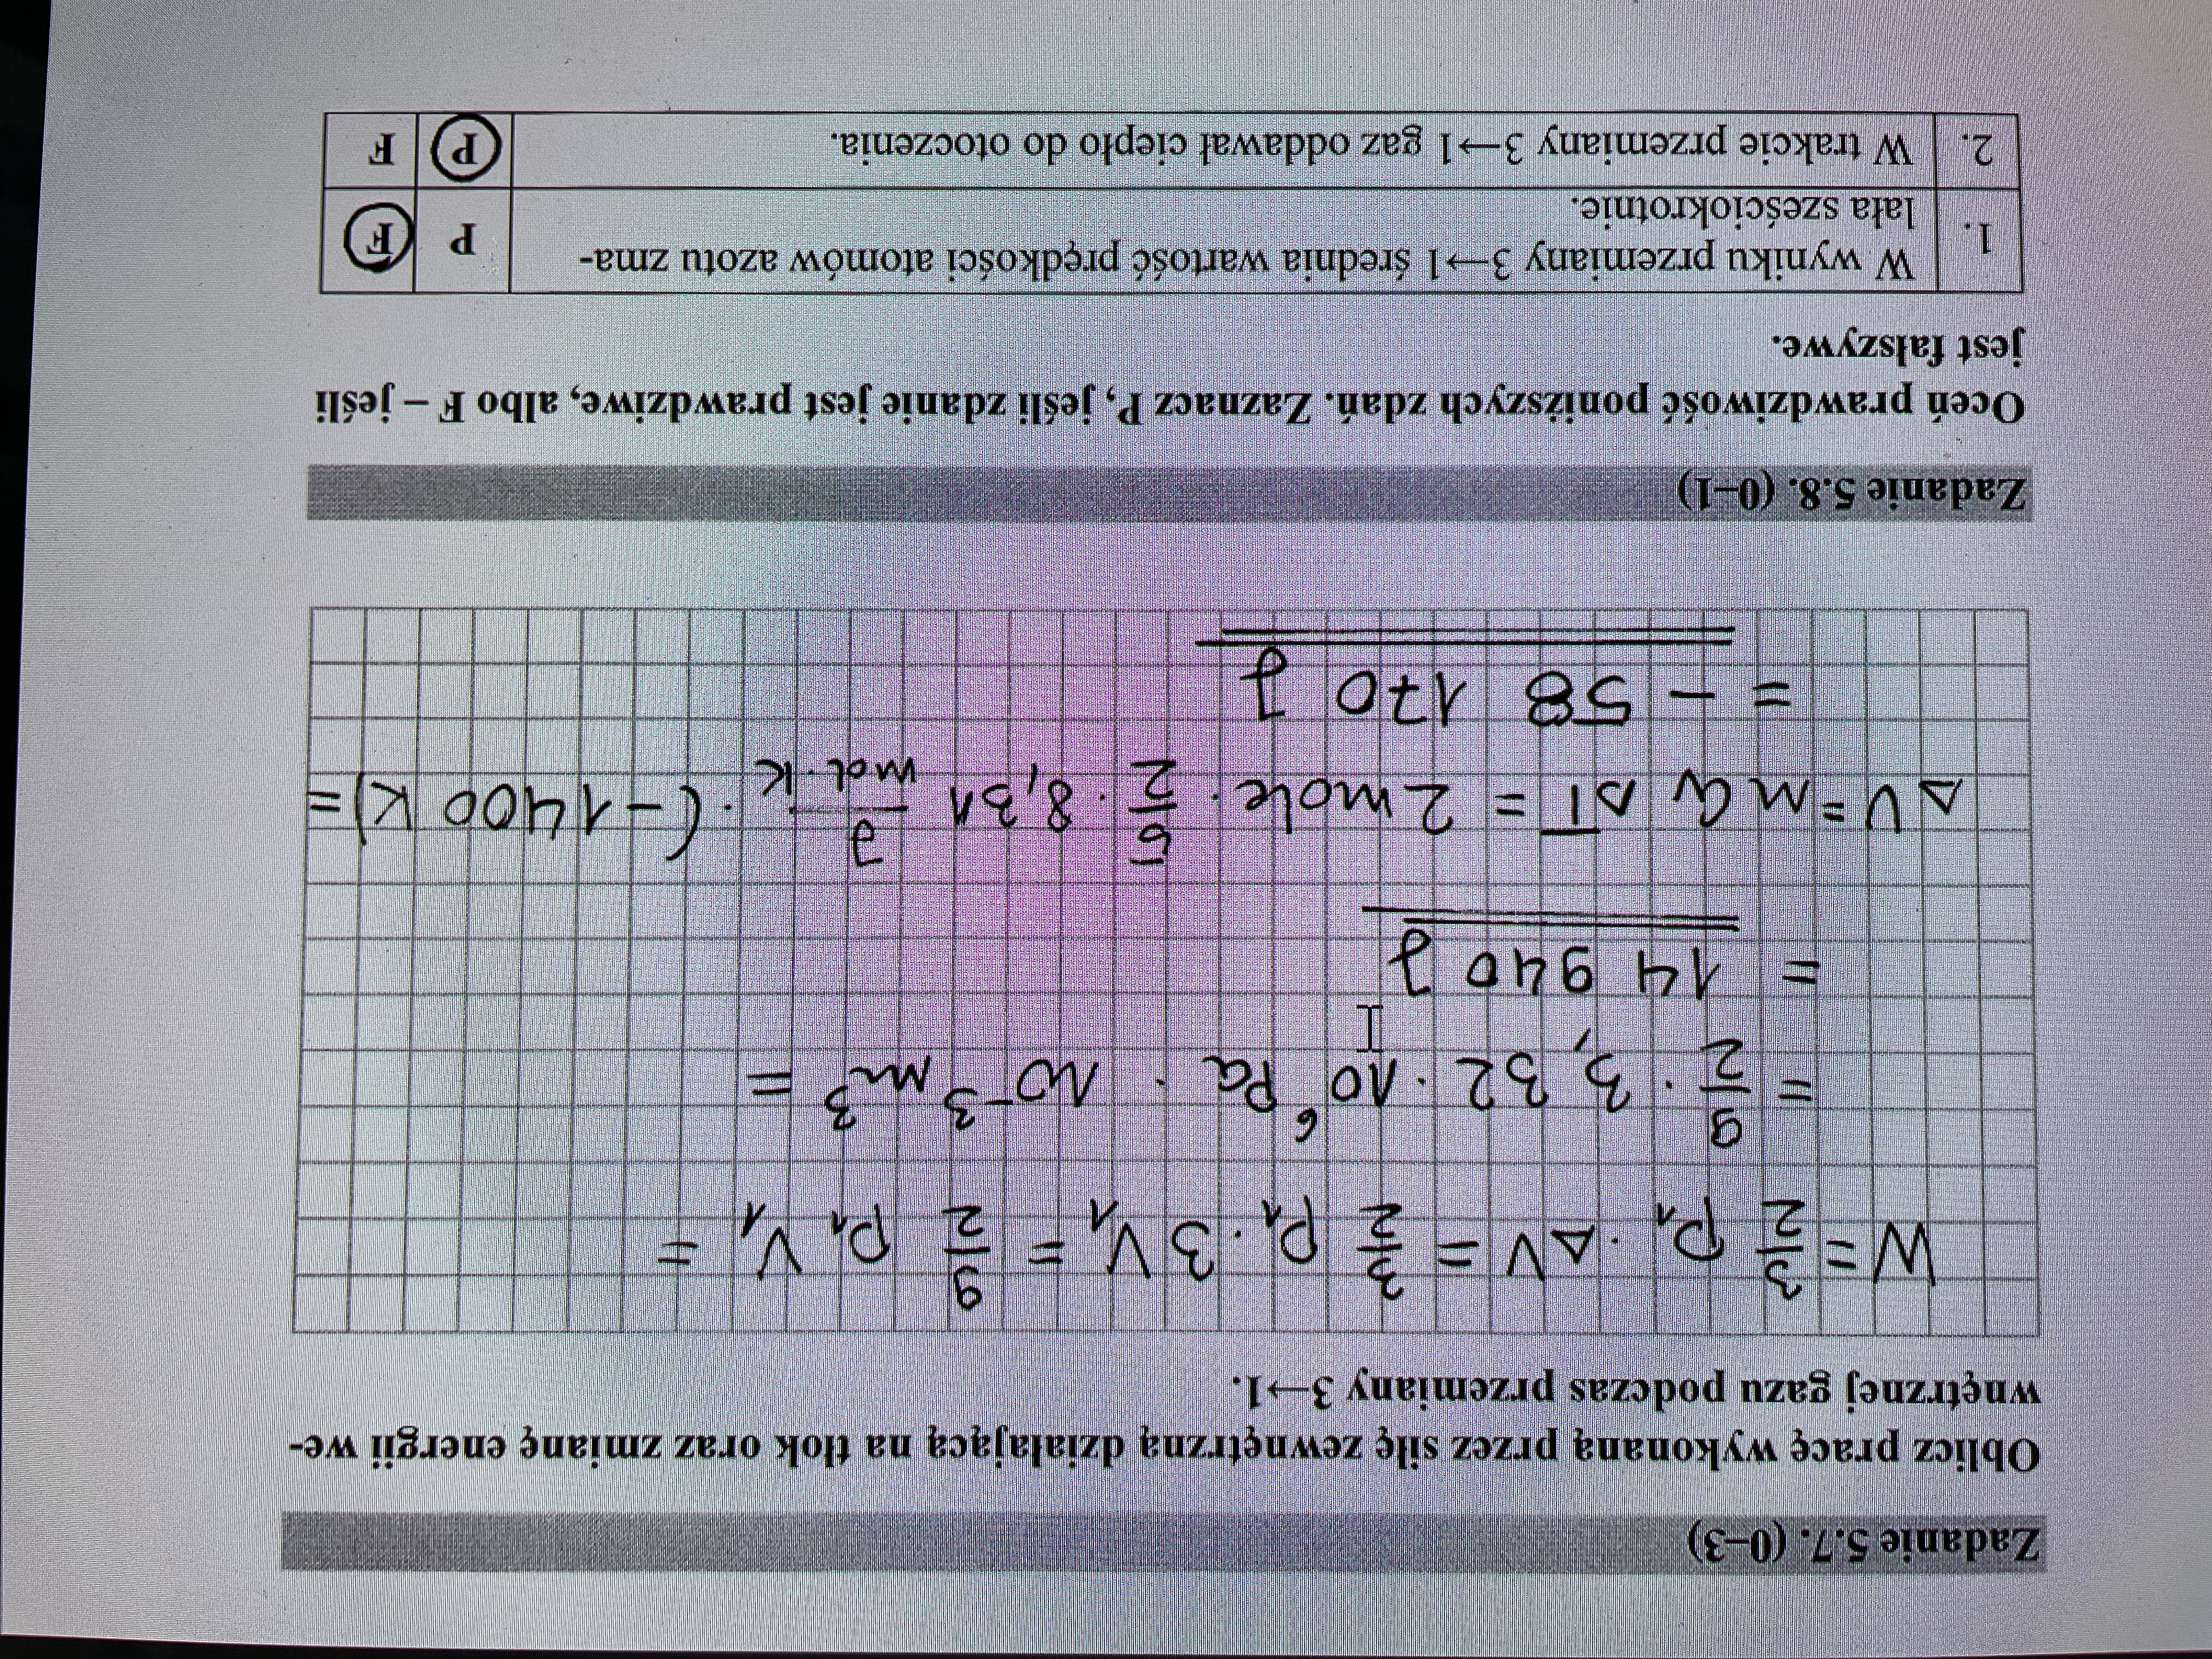 Zadanie 5.7. (0–3)
Oblicz pracę wykonaną przez siłę zewnętrzną działającą na tłok oraz zmianę energii we-
wnętrznej gazu podczas przemiany 3→1.
W = 3/2 p₁ · ΔV = 3/2 p₁ · 3V₁ = 9/2 p₁ V₁ =
= 9/2 · 3,32 · 10⁶ Pa · 10⁻³ m³ =
= 14 940 J
ΔU = n Cv ΔT = 2 mole · 5/2 · 8,31 J/mol·K · (−1400 K) =
= − 58 170 J
Zadanie 5.8. (0–1)
Oceń prawdziwość poniższych zdań. Zaznacz P, jeśli zdanie jest prawdziwe, albo F – jeśli
jest fałszywe.
1. W wyniku przemiany 3→1 średnia wartość prędkości atomów azotu zma- P F
lała sześciokrotnie.
2. W trakcie przemiany 3→1 gaz oddawał ciepło do otoczenia. P F